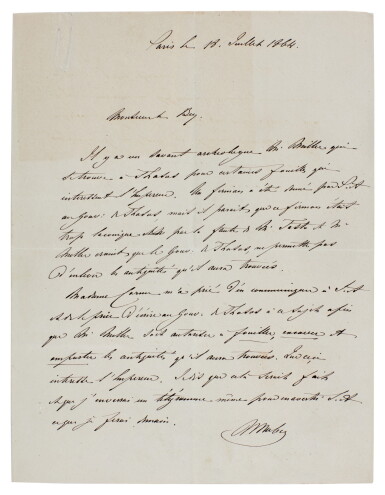 Paris le 18 Juillet 1864.
Monsieur le Bey.
Il y a un savant archeologue Mr. Miller qui
se trouve à Thasos pour certaines fouilles qui
intéressent l'Empereur. Un firman a été envoyé par S.A
au Gouv. de Thasos, mais il parait que ce firman étant
trop laconique par la faute de Mr. Testa et Mr.
Miller craint que le Gouv. de Thasos ne permette pas
d'enlever les antiquités qu'il aura trouvées.
Madame Cornu m'a prié d'en communiquer à S.A
et de le prier d'écrire au Gouv. de Thasos à ce sujet afin
que Mr. Miller soit autorisé à fouiller, et
emporter les antiquités qu'il aura trouvées.
intéresse l'Empereur. J'ai dit que cela serait fait
et que j'enverrai un télégramme même pour avertir S.A
ce que je ferai demain.